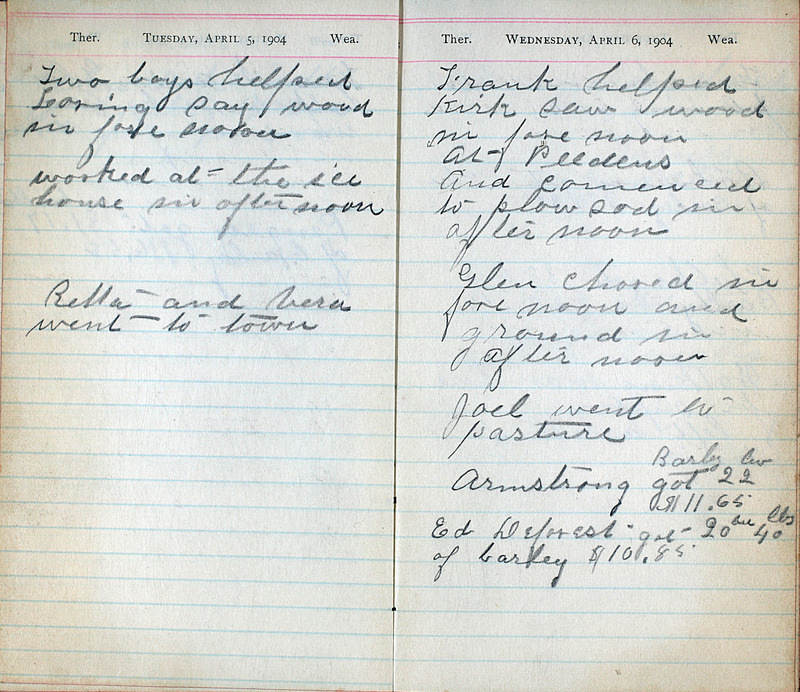 Ther. Tuesday, April 5, 1904 Wea.
Two boys helped
Loring say wood
in fore noon
worked at the ice
house in after noon
Retta and Vera
went to town
Ther. Wednesday, April 6, 1904 Wea.
Frank helped
Kirk saw wood
in fore noon
At
And comenced
to plow sod in
after noon
Glen chored in
fore noon and
ground in
after noon
Joel went to
pasture
Barly bu
Armstrong got 22
$11.65
Ed Deforest got 20 bu 40 lbs
of barley $10.85